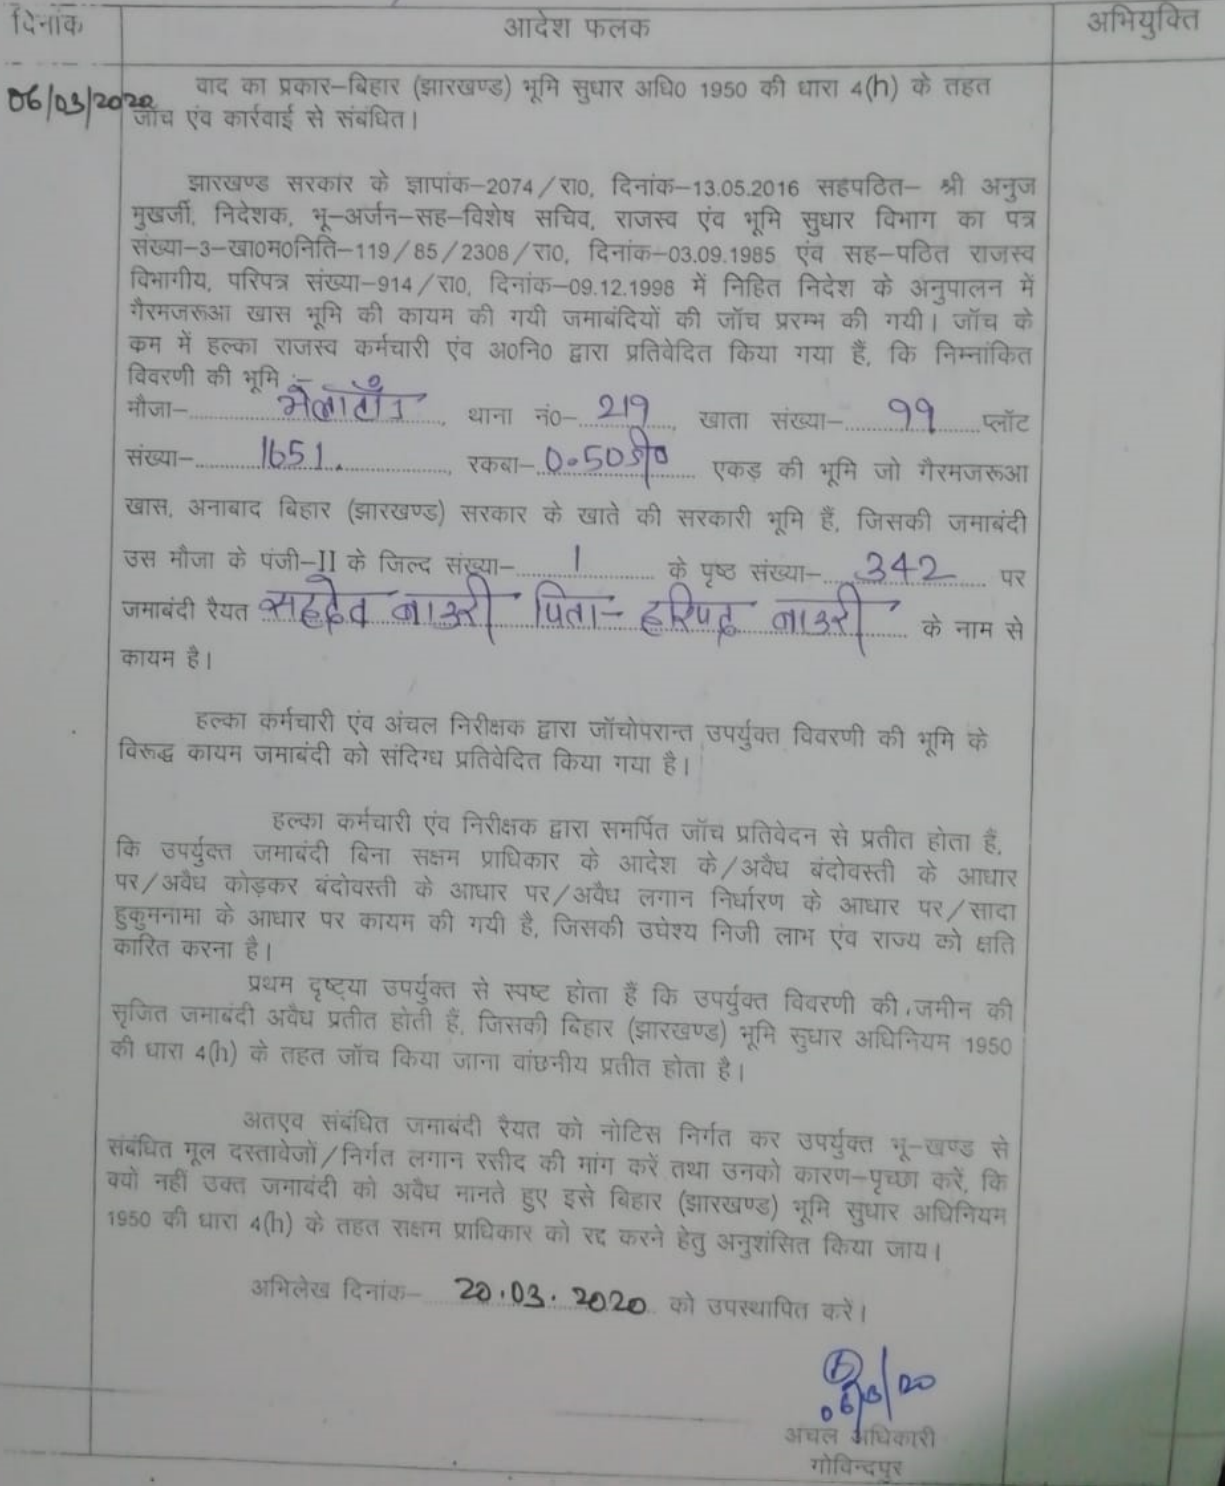 दिनांक आदेश फलक अभियुक्ति
06/03/2020 वाद का प्रकार–बिहार (झारखण्ड) भूमि सुधार अधि0 1950 की धारा 4(h) के तहत
जॉच एंव कार्रवाई से संबंधित।
झारखण्ड सरकार के ज्ञापांक–2074/रा0, दिनांक–13.05.2016 सहपठित– श्री अनुज
मुखर्जी, निदेशक, भू–अर्जन–सह–विशेष सचिव, राजस्व एंव भूमि सुधार विभाग का पत्र
संख्या–3–खा0म0निति–119/85/2308/रा0, दिनांक–03.09.1985 एंव सह–पठित राजस्व
विभागीय, परिपत्र संख्या–914/रा0, दिनांक–09.12.1998 में निहित निदेश के अनुपालन में
गैरमजरूआ खास भूमि की कायम की गयी जमाबंदियों की जॉच प्ररम्भ की गयी। जॉच के
कम में हल्का राजस्व कर्मचारी एंव अ0नि0 द्वारा प्रतिवेदित किया गया हैं, कि निम्नांकित
विवरणी की भूमि :–
मौजा– थाना नं0– 219, खाता संख्या– 99 प्लॉट
संख्या– 1651, रकबा– 0.50डी0 एकड़ की भूमि जो गैरमजरूआ
खास, अनाबाद बिहार (झारखण्ड) सरकार के खाते की सरकारी भूमि हैं, जिसकी जमाबंदी
उस मौजा के पंजी–II के जिल्द संख्या– 1 के पृष्ठ संख्या– 342 पर
जमाबंदी रैयत सहदेव बाउरी पिता– हरिपद बाउरी के नाम से
कायम है।
हल्का कर्मचारी एंव अंचल निरीक्षक द्वारा जॉचोपरान्त उपर्युक्त विवरणी की भूमि के
विरूद्ध कायम जमाबंदी को संदिग्ध प्रतिवेदित किया गया है।
हल्का कर्मचारी एंव निरीक्षक द्वारा समर्पित जॉच प्रतिवेदन से प्रतीत होता हैं,
कि उपर्युक्त जमाबंदी बिना सक्षम प्राधिकार के आदेश के/अवैध बंदोवस्ती के आधार
पर/अवैध कोड़कर बंदोवस्ती के आधार पर/अवैध लगान निर्धारण के आधार पर/सादा
हुकुमनामा के आधार पर कायम की गयी है, जिसकी उघेश्य निजी लाभ एंव राज्य को क्षति
कारित करना है।
प्रथम दृष्ट्या उपर्युक्त से स्पष्ट होता हैं कि उपर्युक्त विवरणी की जमीन की
सृजित जमाबंदी अवैध प्रतीत होती हैं, जिसकी बिहार (झारखण्ड) भूमि सुधार अधिनियम 1950
की धारा 4(h) के तहत जॉच किया जाना वांछनीय प्रतीत होता है।
अतएव संबंधित जमाबंदी रैयत को नोटिस निर्गत कर उपर्युक्त भू–खण्ड से
संबंधित मूल दस्तावेजों/निर्गत लगान रसीद की मांग करें तथा उनको कारण–पृच्छा करें, कि
क्यों नहीं उक्त जमाबंदी को अवैध मानते हुए इसे बिहार (झारखण्ड) भूमि सुधार अधिनियम
1950 की धारा 4(h) के तहत सक्षम प्राधिकार को रद्द करने हेतु अनुशंसित किया जाय।
अभिलेख दिनांक– 20.03.2020 को उपस्थापित करें।
06/03/20
अंचल अधिकारी
गोविन्दपुर